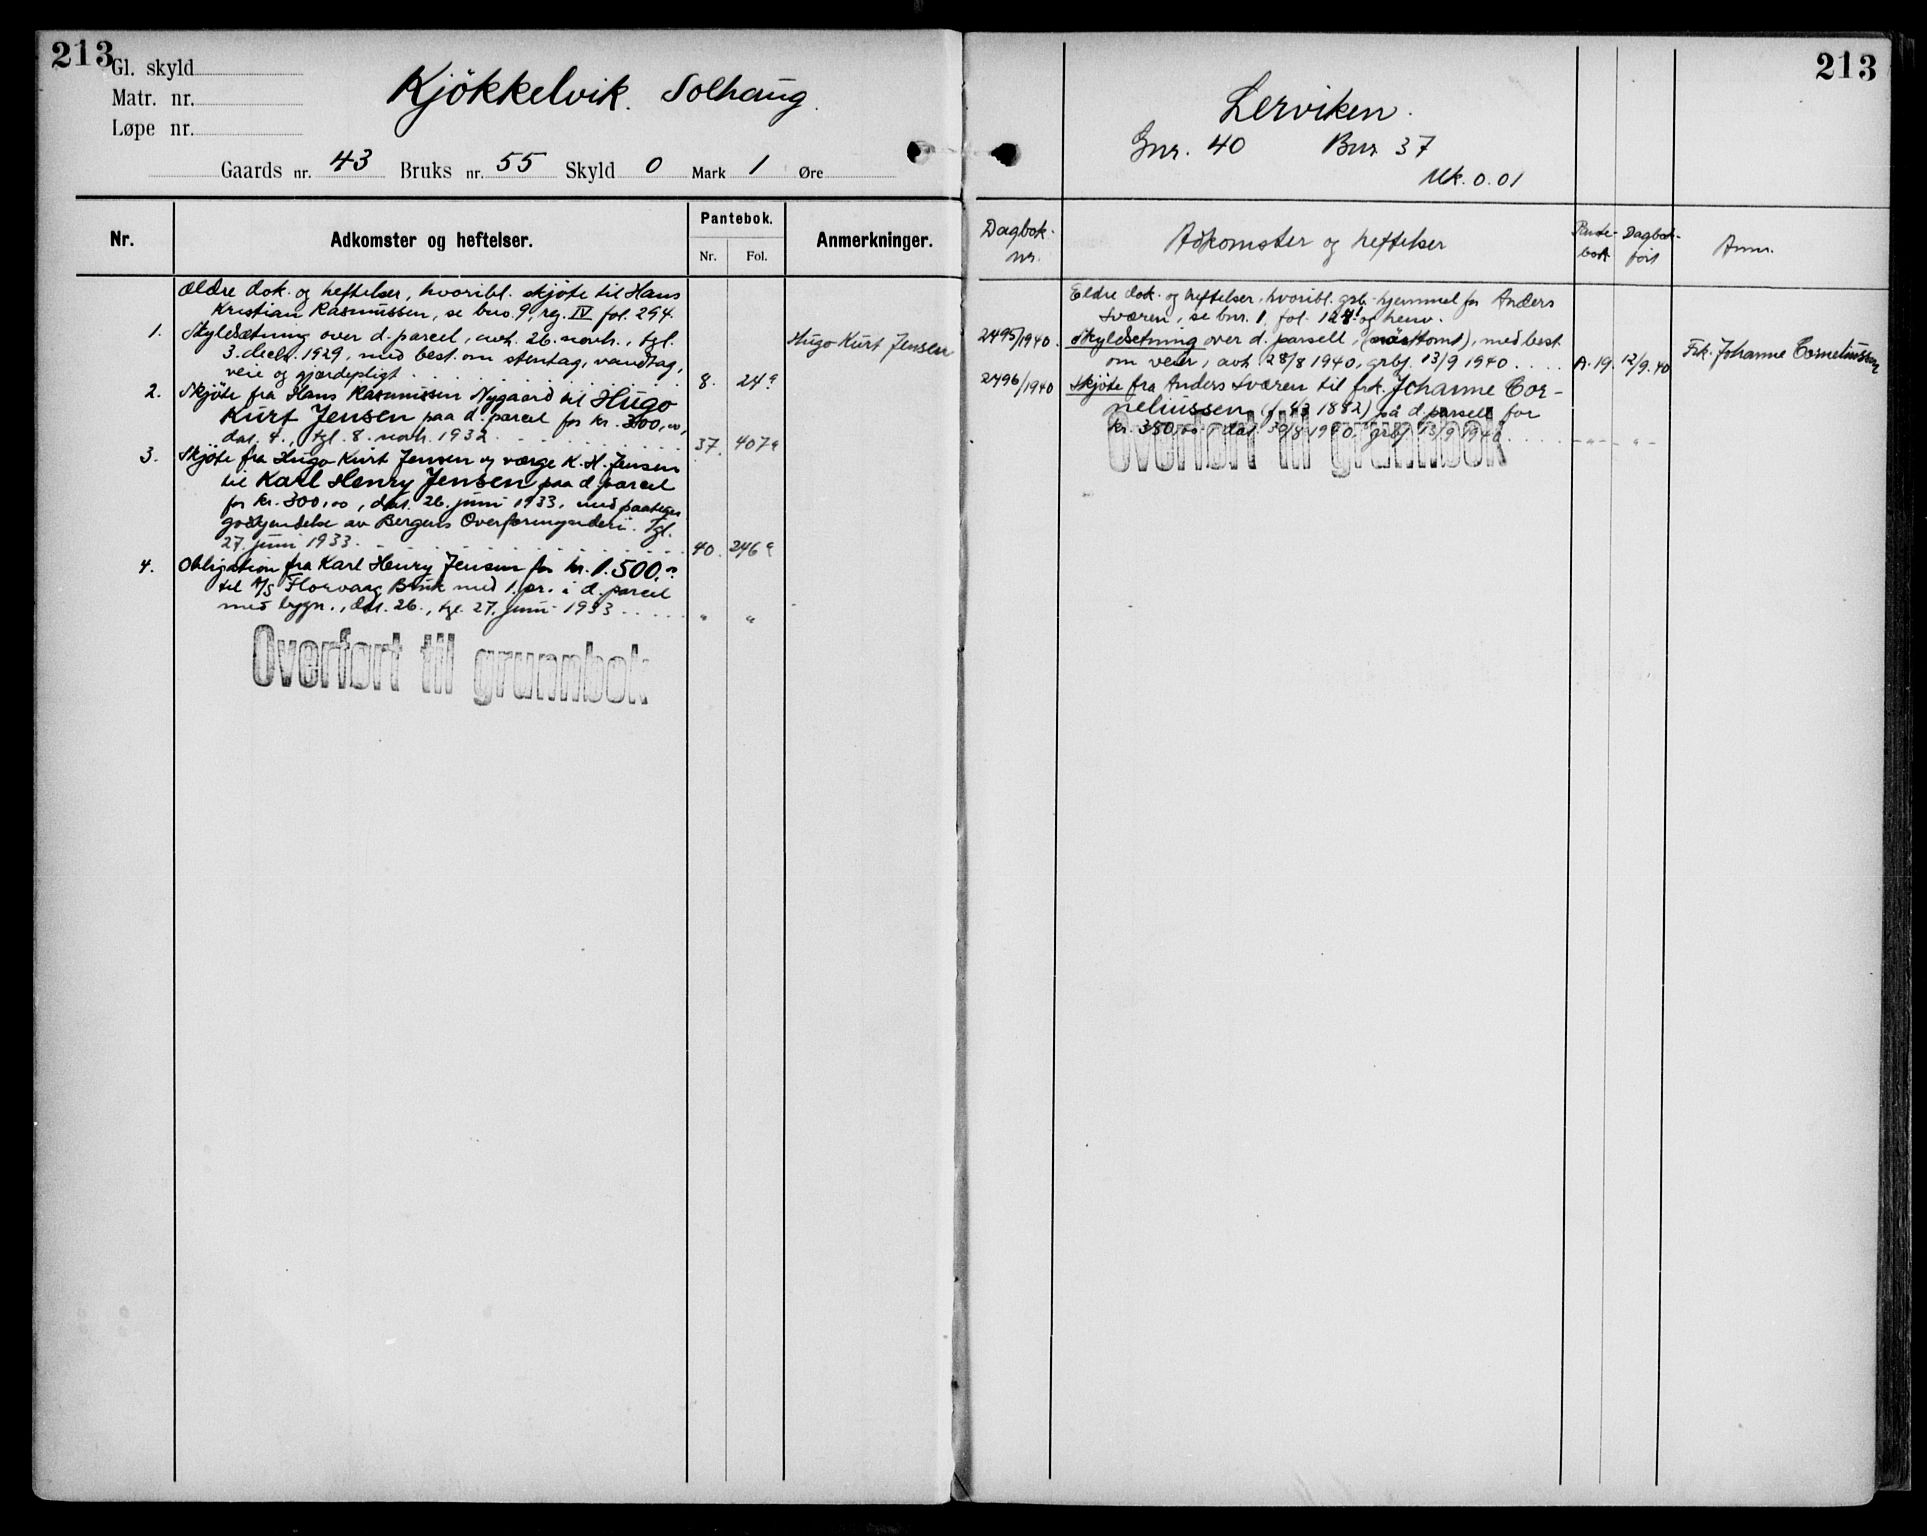 213
Gl. skyld
Matr. nr.
Løpe nr.
Kjökkelvik. Solhaug.
Gaards nr. 43 Bruks nr. 55 Skyld 0 Mark 1 Øre
Nr.
Adkomster og heftelser.
Pantebok.
Nr. Fol.
Anmerkninger.
Ældre dok. og heftelser, hvoribl. skjöte til Hans
Kristian Rasmussen, se bno. 9, reg. IV fol. 294.
1. Skyldsætning over d. parcel, avh. 26. novb., tgl.
3. decbr. 1929, med best. om stentag, vandtag,
veie og gjærdepligt 8. 24a
Hugo Kurt Jensen
2. Skjöte fra Hans Rasmussen Nygaard til Hugo
Kurt Jensen paa d. parcel for kr. 300,00,
dat. 4., tgl. 8. novb. 1932 37. 407a
3. Skjöte fra Hugo Kurt Jensen og værge K. H. Jensen
til Karl Henry Jensen paa d. parcel
for kr. 300,00, dat. 26. juni 1933, med paategn.
godkjendelse av Bergens Overformynderi. Tgl.
27. juni 1933 40. 246a
4. Obligation fra Karl Henry Jensen for kr. 1.500,00
til A/S Florvaag Bruk med 1. pr. i d. parcel
med bygn., dat. 26., tgl. 27. juni 1933 " "
Overført til grunnbok
213
Lerviken.
Gnr. 40 Bnr 37
Mk. 0.01
Dagbok-
nr.
Adkomster og heftelser
Pante-
bok
Dagbok-
ført
Anm.
Eldre dok. og heftelser, hvoribl. grb. hjemmel for Anders
Sværen, se bnr. 1, fol. 127 og henv.
2495/1940. Skyldsetning over d. parsell, med best.
om veier, avh. 28/8 1940, grbf. 13/9 1940 A. 19. 12/9.40
Frk. Johanne Corneliussen
2496/1940 Skjöte fra Anders Sværen til frk. Johanne Cor-
neliussen (f. 4/3 1882) på d. parsell for
kr. 350,00 dat. 30/8 1940, grbf. 13/9 1940 -"- -"-
Overført til grunnbok